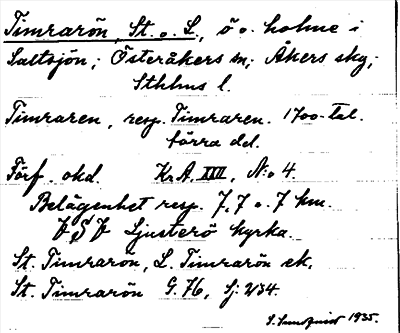 Timrarön, St. o. L., ö o. holme i
Saltsjön; Österåkers sn; Åkers skg;
Sthlms l.
Timraren, resp. Timraren. 1700-tal.
förra del.
Förf. okd. Kr.A. XXII, N:o 4.
Belägenhet resp. 7,7 o. 7 km.
Ljusterö kyrka.
St. Timrarön, L. Timrarön ek.
St. Timrarön G. 76, Sj. 234.
S. Sundquist 1935.